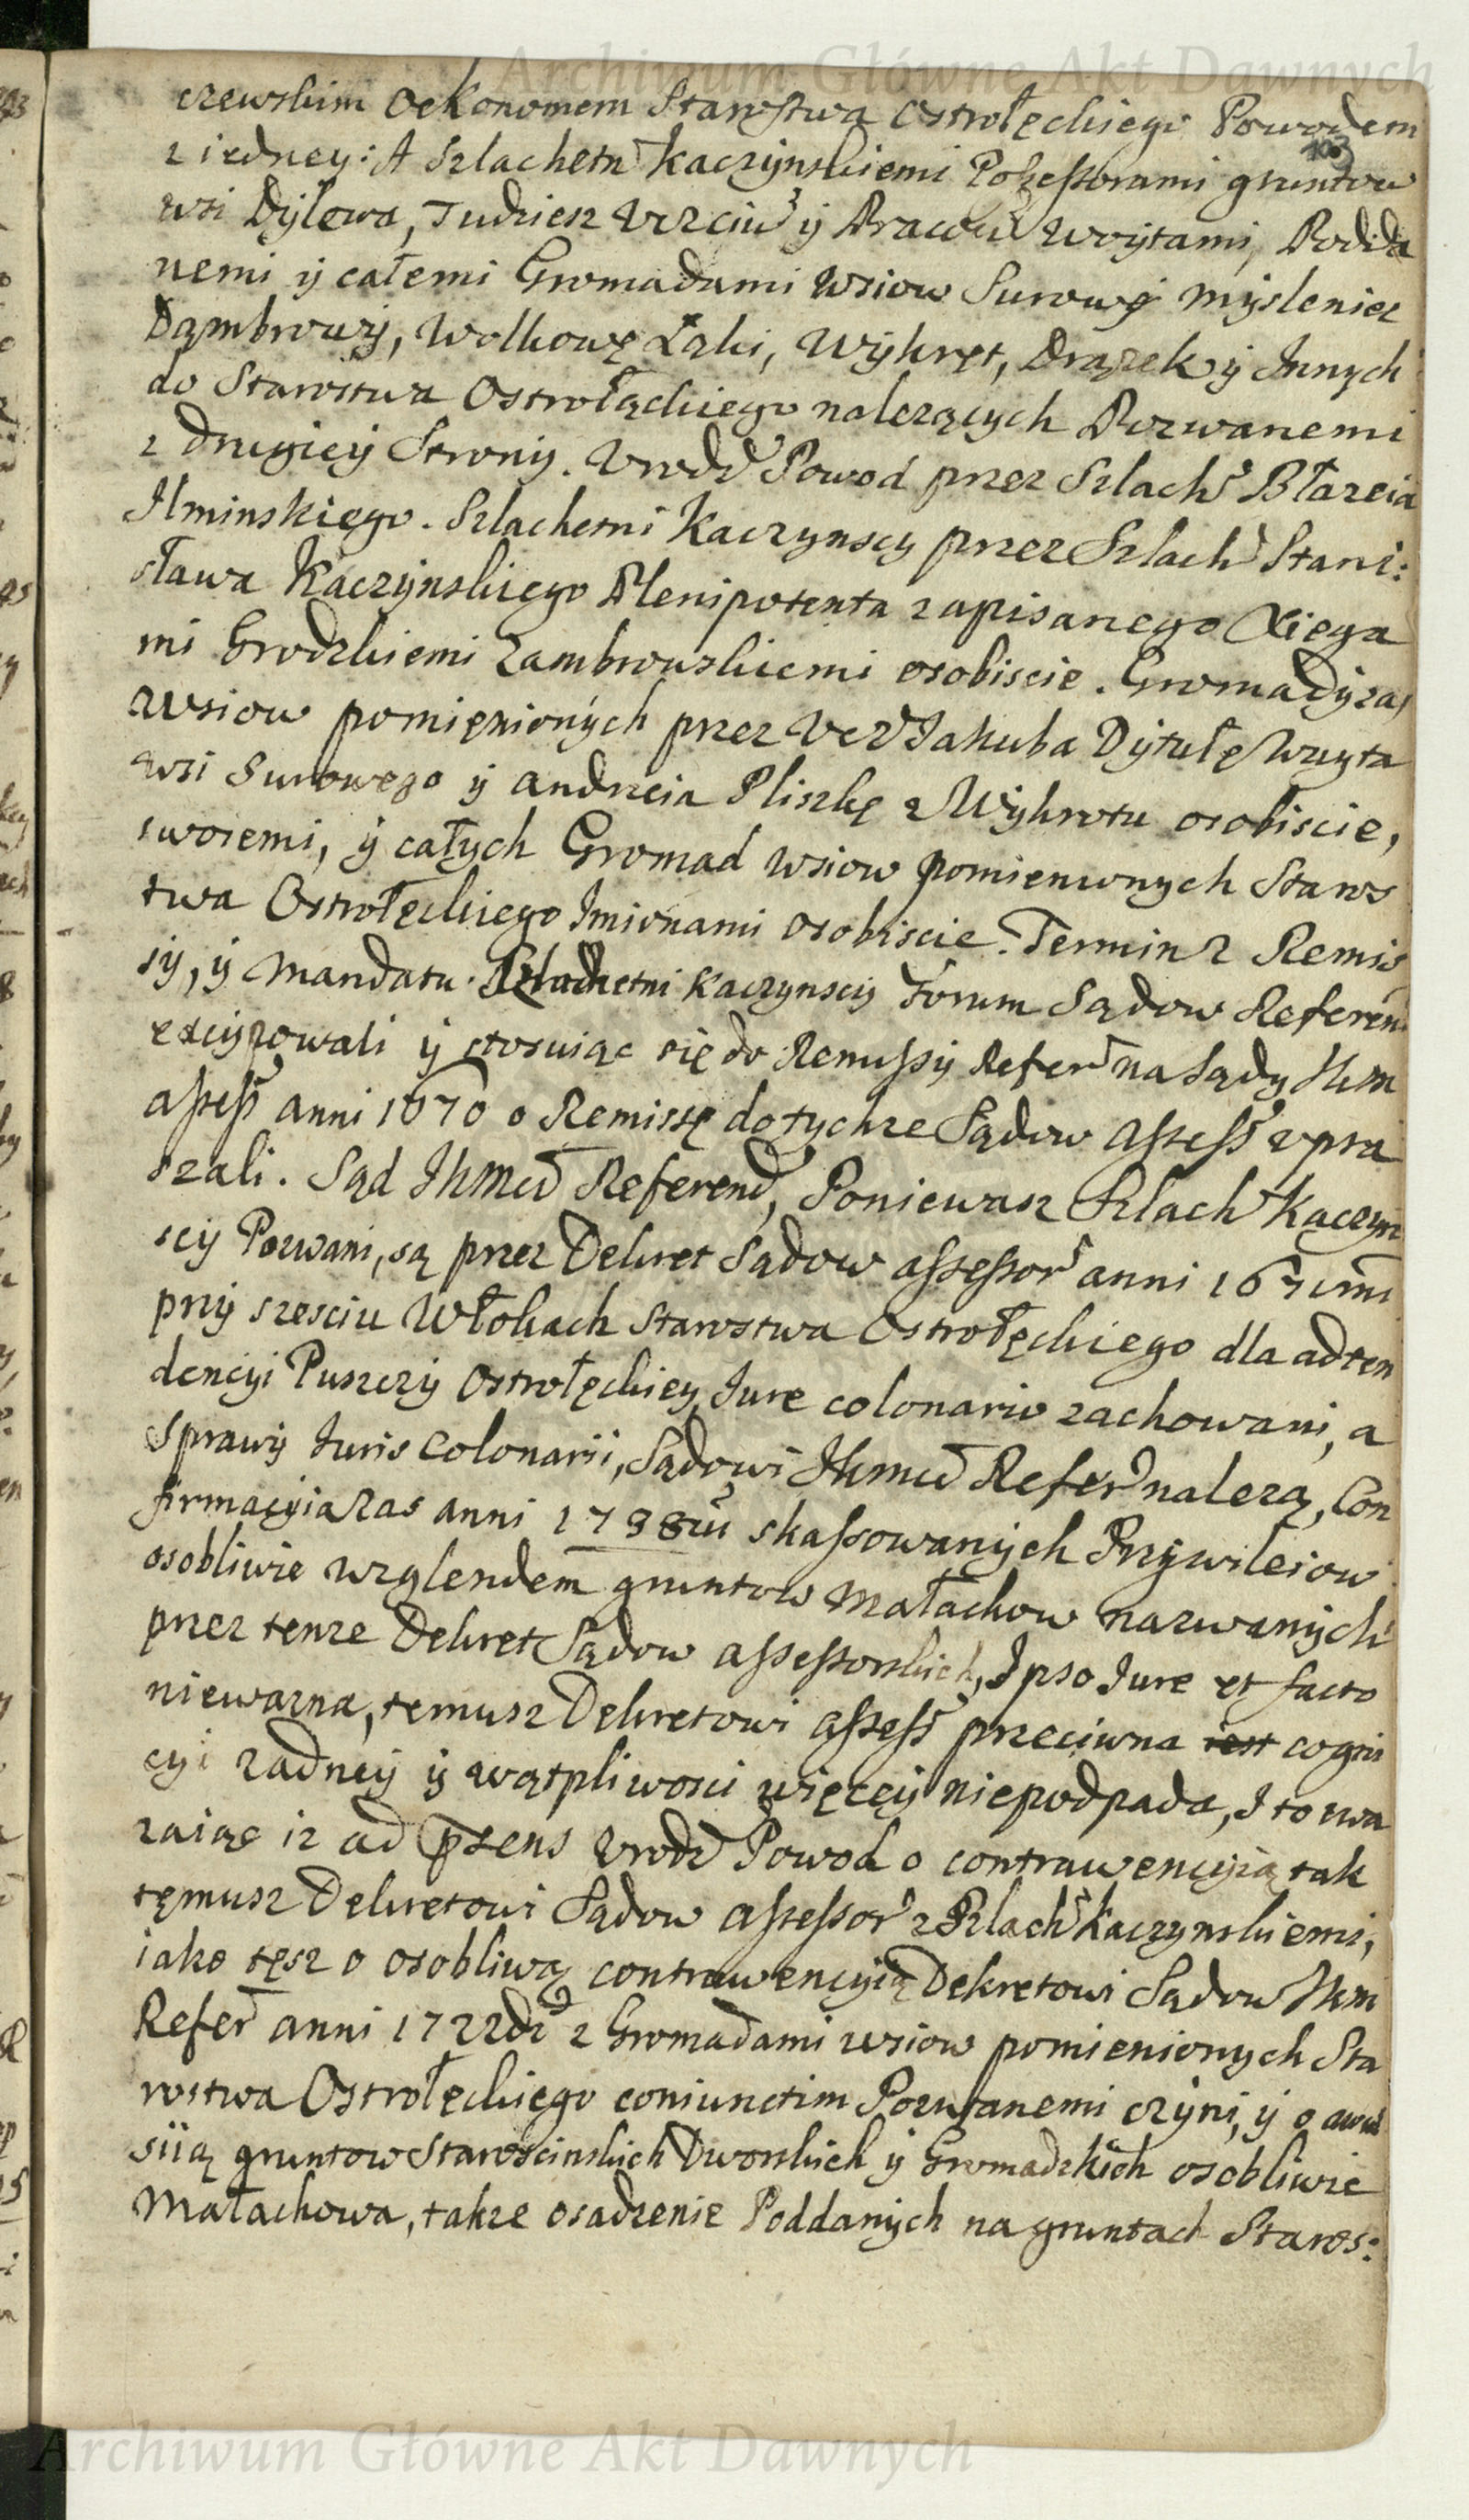 Archiwum Główne Akt Dawnych
czewskim Oekonomem Starostwa Ostrołęckiego Powodem
103
z iedney: A Szlachetn Kaczynskiemi Possessorami gruntow
wsi Dylewa, Tudziesz Uczciw y Pracow Woytami, Podda
nemi y całemi Gromadami Wsiow Surowy Mysleniec
Dąmbrowy, Wolkowę Łąki, Wykręt, Drązek y Innych
do Starostwa Ostrołąckiego nalezących Pozwanemi
z drugiey Strony. Urodz Powod przez Szlach Błazeia
Ilminskiego. Szlachetni Kaczynscy przez Szlach Stani:
sława Kaczynskiego Plenipotenta zapisanego Xięga
mi Grodzkiemi Zambrowskiemi osobiscie. Gromady zas
Wsiow pomięnionych przez Ucz Jakuba Dytułę Wuyta
wsi Surowego y Andrzeia Pliszkę z Wykrotu osobiscie,
swoiemi, y całych Gromad wsiow pomienionych Staros
twa Ostrołęckiego Imionami osobiscie. Termin z Remis
sy, y Mandatu. Szlachetni Kaczynscy Forum Sądow Referen
excypowali y stosuiąc się do Remissy Refer na Sądy JKM
assess anni 1670 o Remissę do tychze Sądow assess upra
szali. Sąd JKMci Referend, Poniewasz Szlach Kączyn
scy Pozwani, są przez Dekret Sądow assessor anni 1671mi
przy szesciu Włokach Starostwa Ostrołęckiego dla adten
dencyi Puszczy Ostrołęckiey Jure colonario zachowani, a
Sprawy Juris Colonarii, Sądowi JKmci Refer nalezą, Con
firmacyia zas anni 1738 skassowanych Przywileiow
osobliwie względem gruntow Małachow nazwanych
przez tenze Dekret Sądow assessorskich, Ipso Jure et facto
niewazna, temusz Dekretowi assess przeciwna iest cogni
cyi zadney y wątpliwosci więcey niepodpada, I to uwa
zaiąc iz ad psens Urodz Powod o contrawencyią tak
tęmusz Dekretowi Sądow assessor z Szlach Kaczynskiemi,
iako tęsz o osobliwą contrawencyią Dekretowi Sądow JKM
Refer anni 1722di z Gromadami wsiow pomienionych Sta
rostwa Ostrołęckiego coniunctim Pozwanemi czyni, y o awul
siią gruntow Staroscinskich Dworskich y Gromadzkich osobliwie
Małachowa, takze osadzenie Poddanych na gruntach Staros:
Archiwum Główne Akt Dawnych